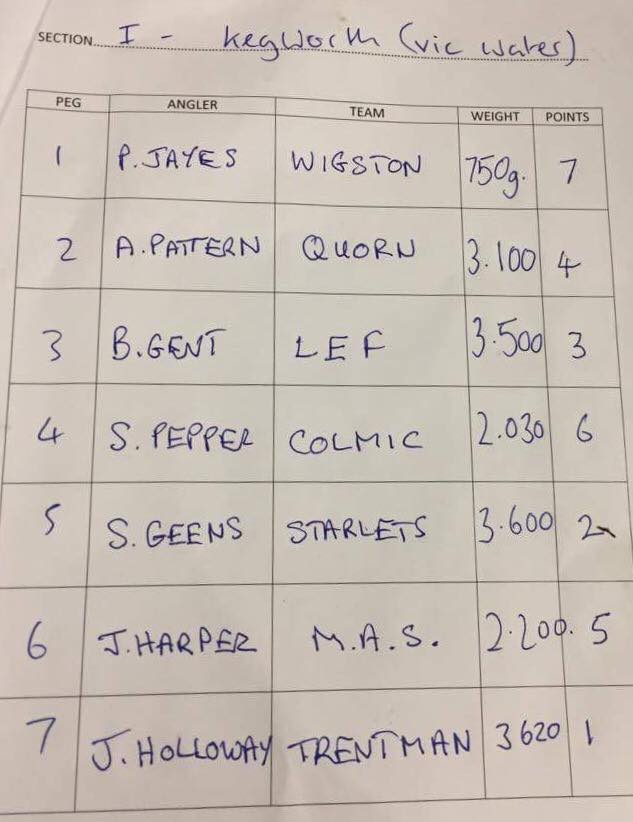 SECTION I - Kegworth (vic water)
PEG ANGLER TEAM WEIGHT POINTS
1 P. JAYES WIGSTON 750g. 7
2 A. PATTERN QUORN 3.100 4
3 B. GENT LEF 3.500 3
4 S. PEPPER COLMIC 2.030 6
5 S. GEENS STARLETS 3.600 2
6 J. HARPER M.A.S. 2.200. 5
7 J. HOLLOWAY TRENTMAN 3620 1